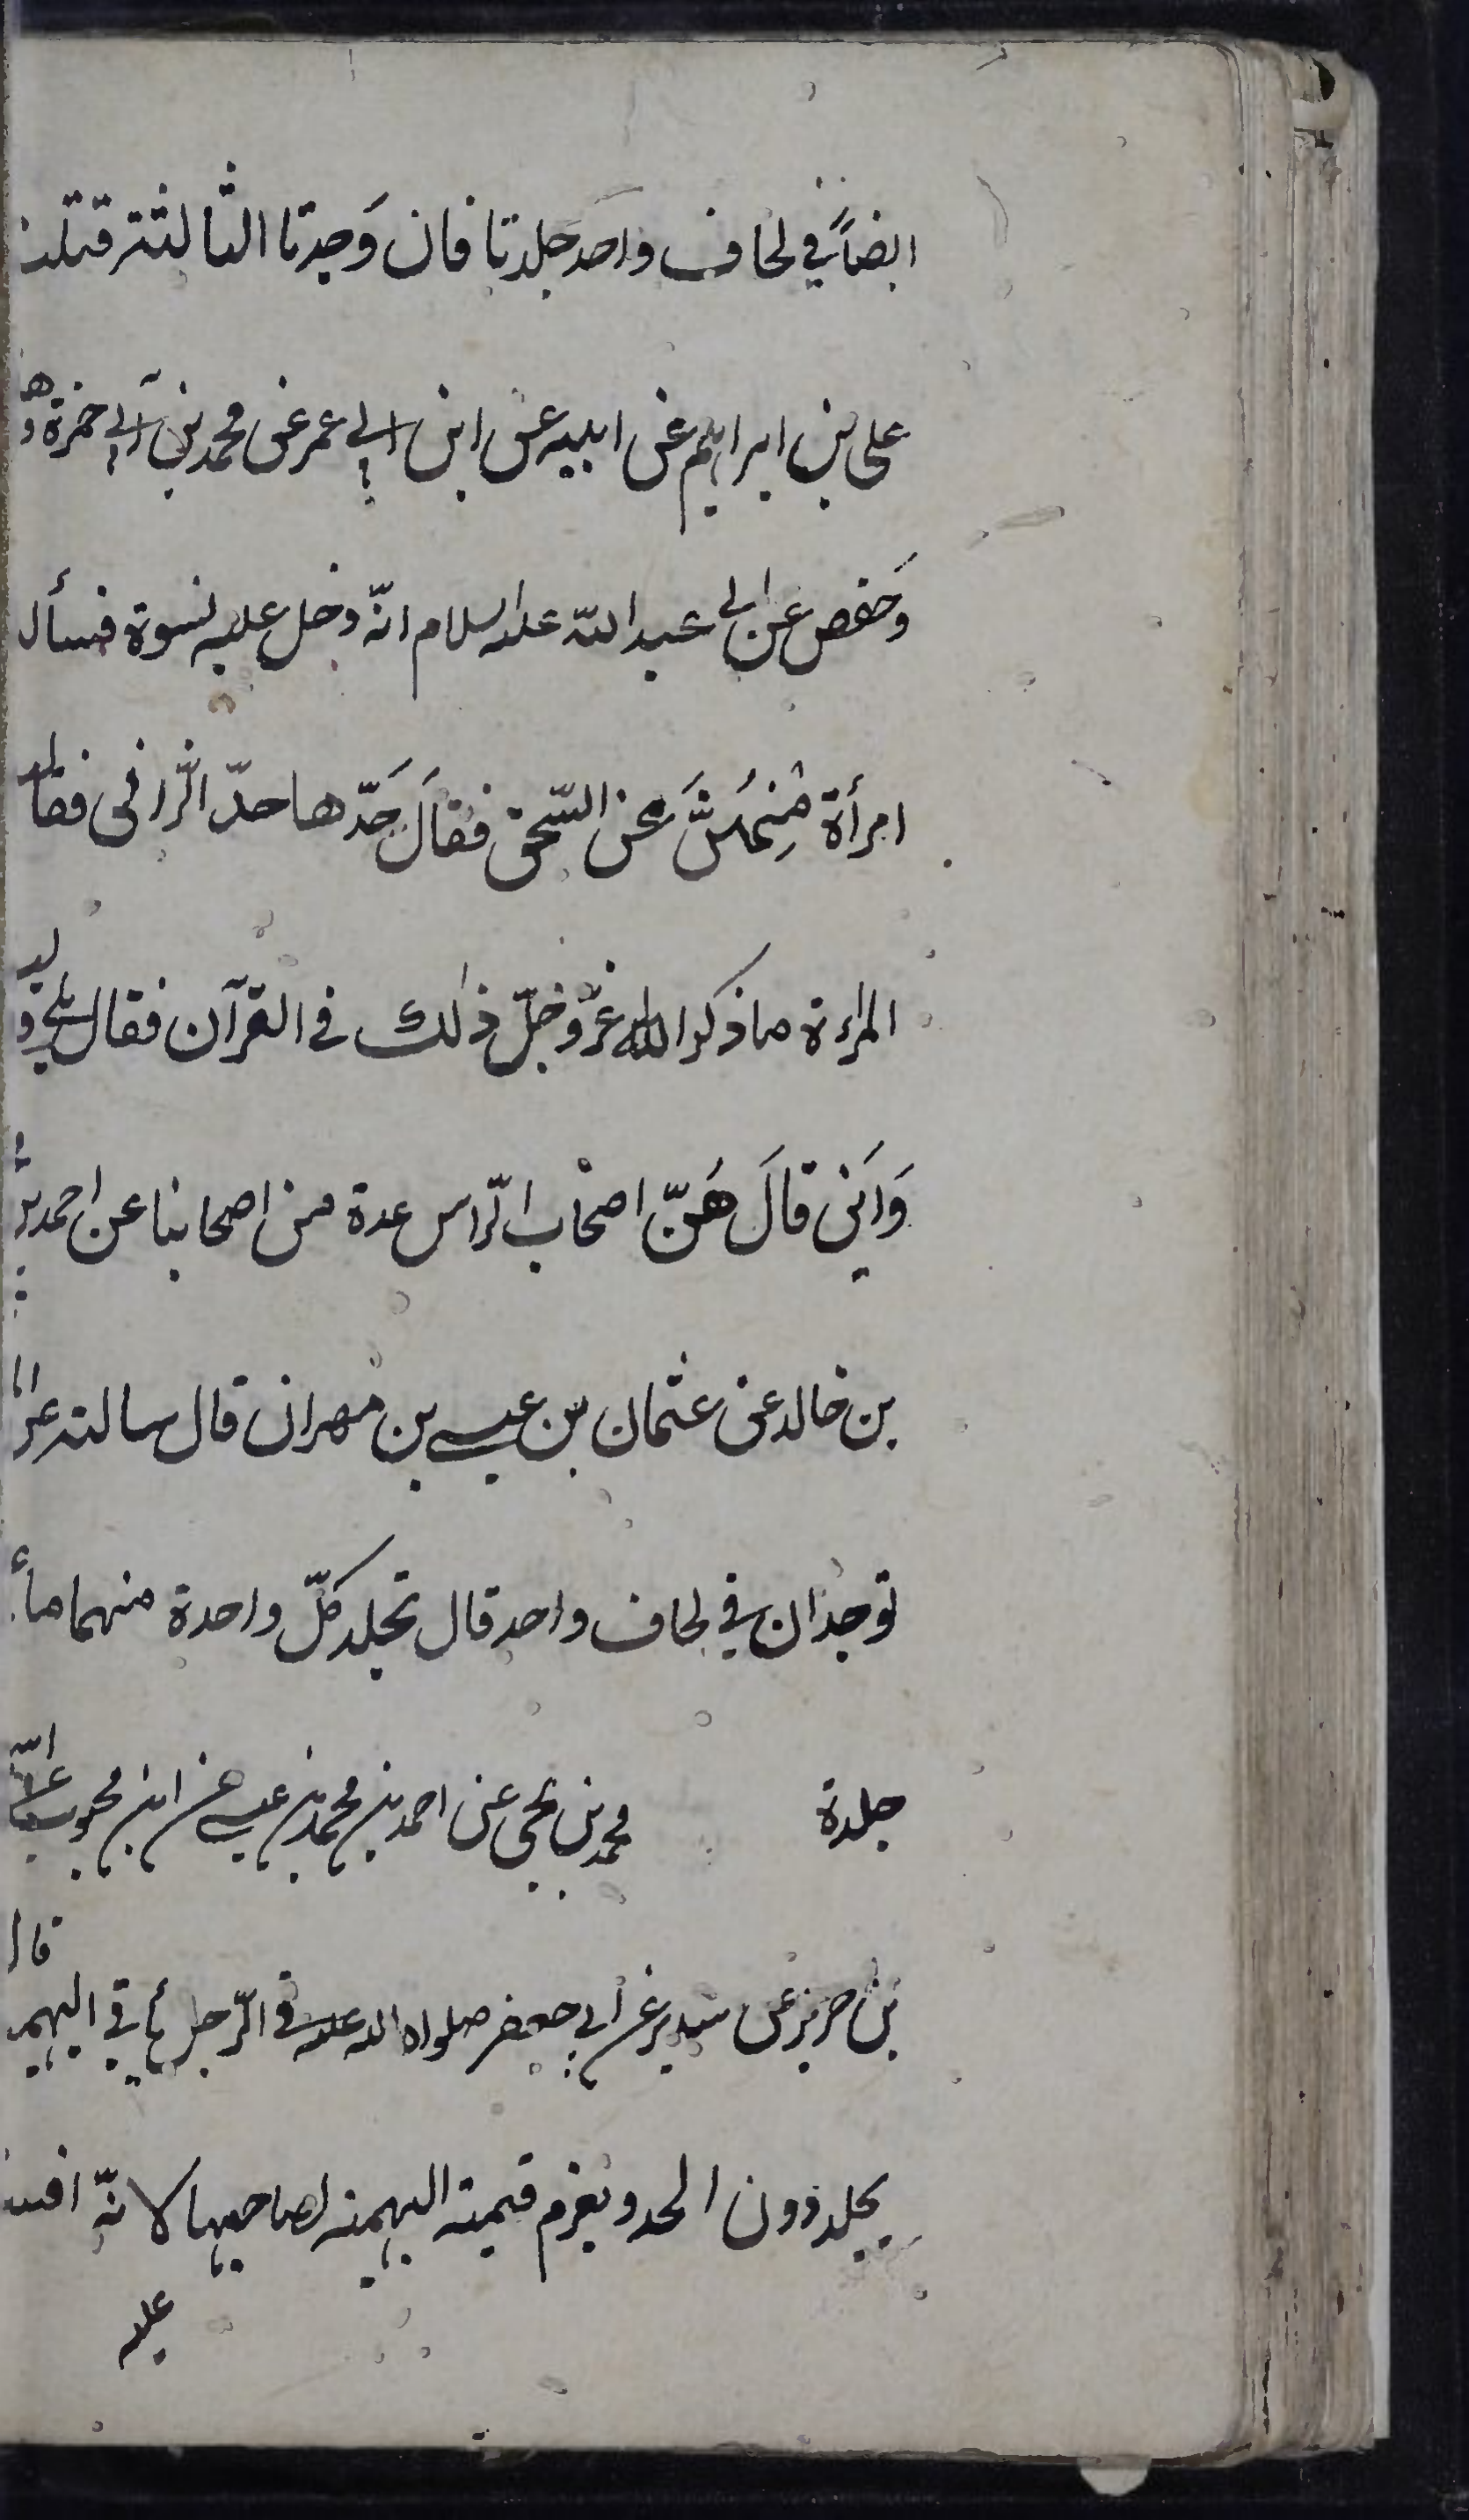 ايضاً في لحاف واحد جلدتا فان وَجدتا الثالثة قتلتا
علی بن ابراهیم عن ابیه عن ابن ابي عمر عن محمد بن أبي حمزة وهـ
وَحفص عن ابي عبد الله عليه السلام انّه دخل عليه نسوة فسأل
امرأة مِنهُنَّ عَن السّحق فقالَ حَدّها حدّ الزّاني فقالت
المراءة ما ذكر الله عزّ وجلّ ذلك في القرآن فقال بلى
وَاَين قالَ هَنّ اصحاب الرّاس عدة من اصحابنا عن احمد بن
بن خالد عن عثمان بن عيسى بن مهران قال سالته عن
توجدان في لحاف واحد قال تجلد كلّ واحدة منهما مأ
جلدة محمد بن يحيى عن احمد بن محمد بن عيسى عن ابن محبوب عن
بن حريز عن سدير عن أبي جعفر صلواه الله عليه في الرّجل يأتي البهيمـ قال
يجلد دون الحد ويغرم قيمة البهيمة لصاحبها لانّه افسد
عليه